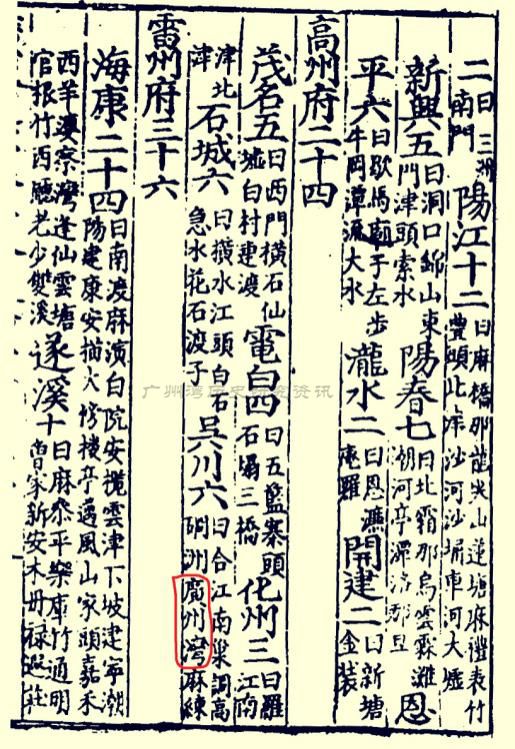 二曰三洲南門 陽江十二曰麻橋那龍尖山蓮塘麻禮表竹豐頭北岸沙河沙埇車河大墟
新興五曰洞口錦山東門津頭索水 陽春七曰北霜那烏雲霖灘朝河亭潭洛那旦 恩
平六曰歇馬廟于左步牛岡潭流大水 瀧水二曰恩庵羅 開建二曰新塘金裝
高州府二十四
茂名五曰西門橫石仙墟白村連渡 電白四曰五藍寨頭石塌三橋 化州三曰羅江南
津北津 石城六曰橫水江頭白石急水花石渡子 吳川六曰合江南巢調高硇洲廣州灣麻練
雷州府三十六
海康二十四曰南渡麻演白院安欖雲津下坡建寧潮陽建康安描火愕樓亭邁風山家頭嘉禾
西羊寮灣逢仙雲塘官根竹西廳老少雙溪 遂溪十曰麻參平樂庫竹通明曾家新安木丹祿遐莊
广州湾历史研究资讯